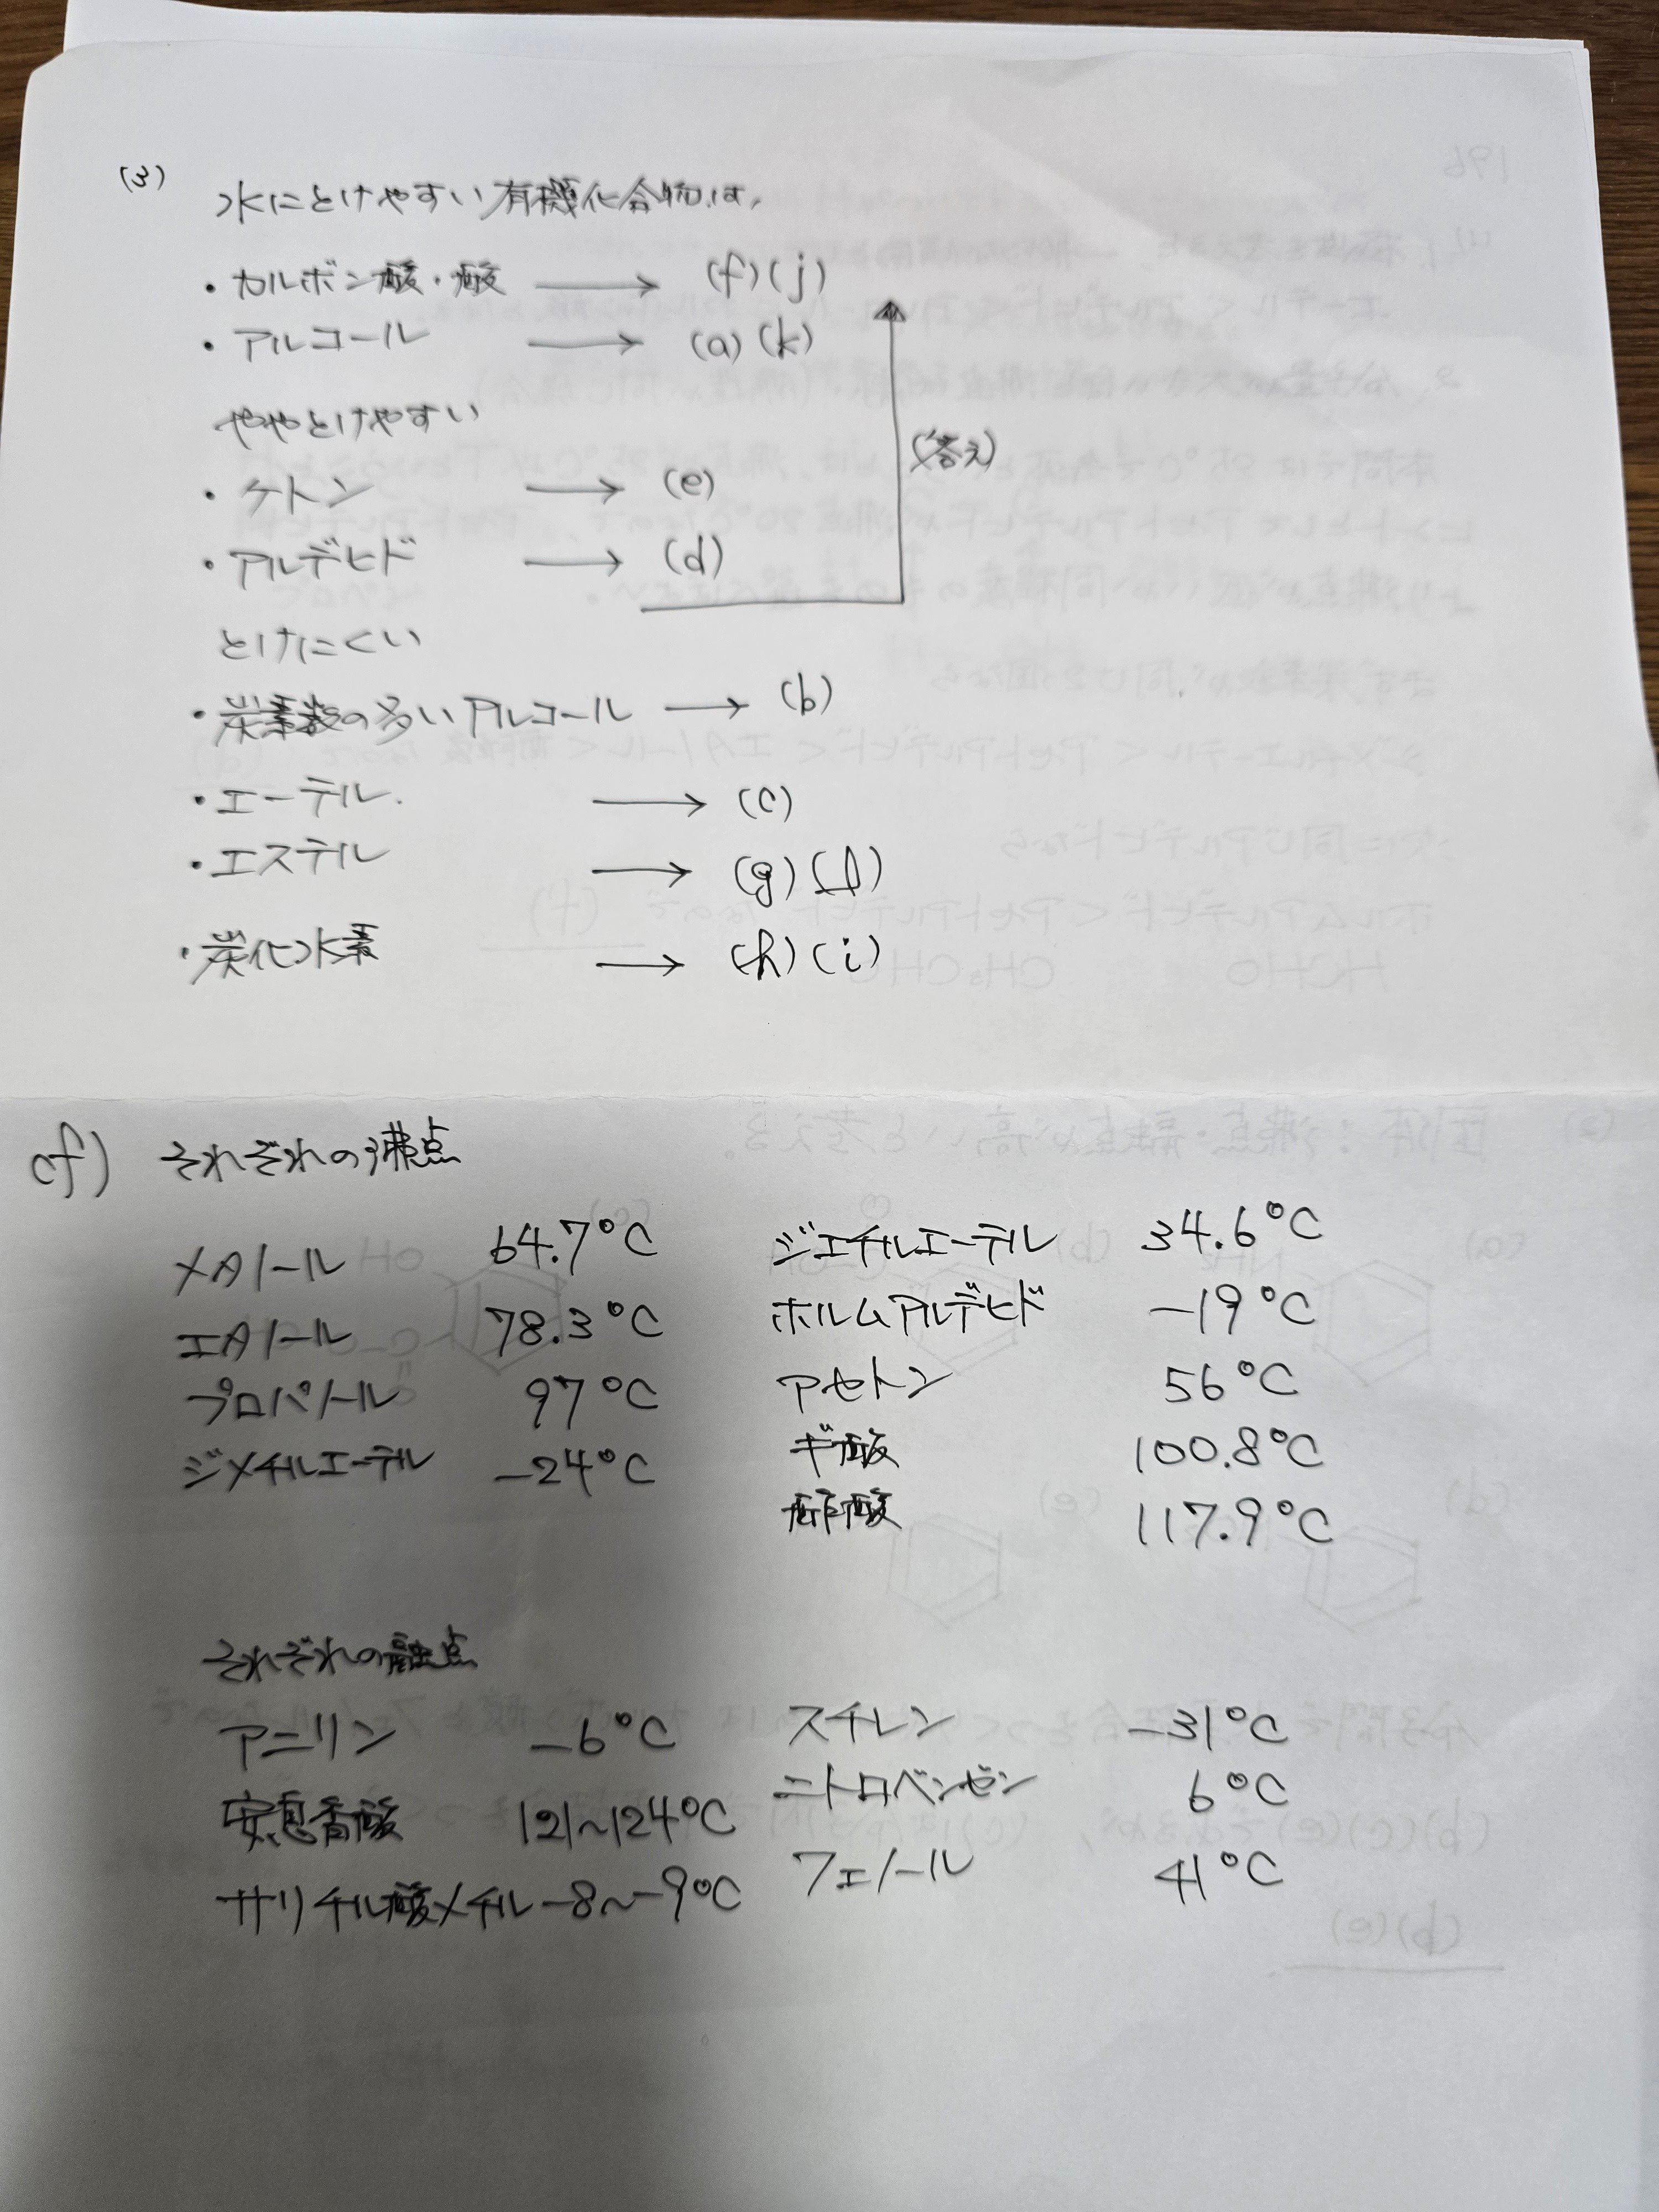 (3) 水にとけやすい有機化合物は、
・カルボン酸・酸 → (f)(j)
・アルコール → (a)(k)
ややとけやすい
(答え)
・ケトン → (e)
・アルデヒド → (d)
とけにくい
・炭素数の多いアルコール → (b)
・エーテル. → (c)
・エステル → (g)(l)
・炭化水素 → (h)(i)
cf) それぞれの沸点
メタノール 64.7°C ジエチルエーテル 34.6°C
エタノール 78.3°C ホルムアルデヒド -19°C
プロパノール 97°C アセトン 56°C
ジメチルエーテル -24°C ギ酸 100.8°C
酢酸 117.9°C
それぞれの融点
アニリン -6°C スチレン -31°C
安息香酸 121~124°C ニトロベンゼン 6°C
サリチル酸メチル -8~-9°C フェノール 41°C